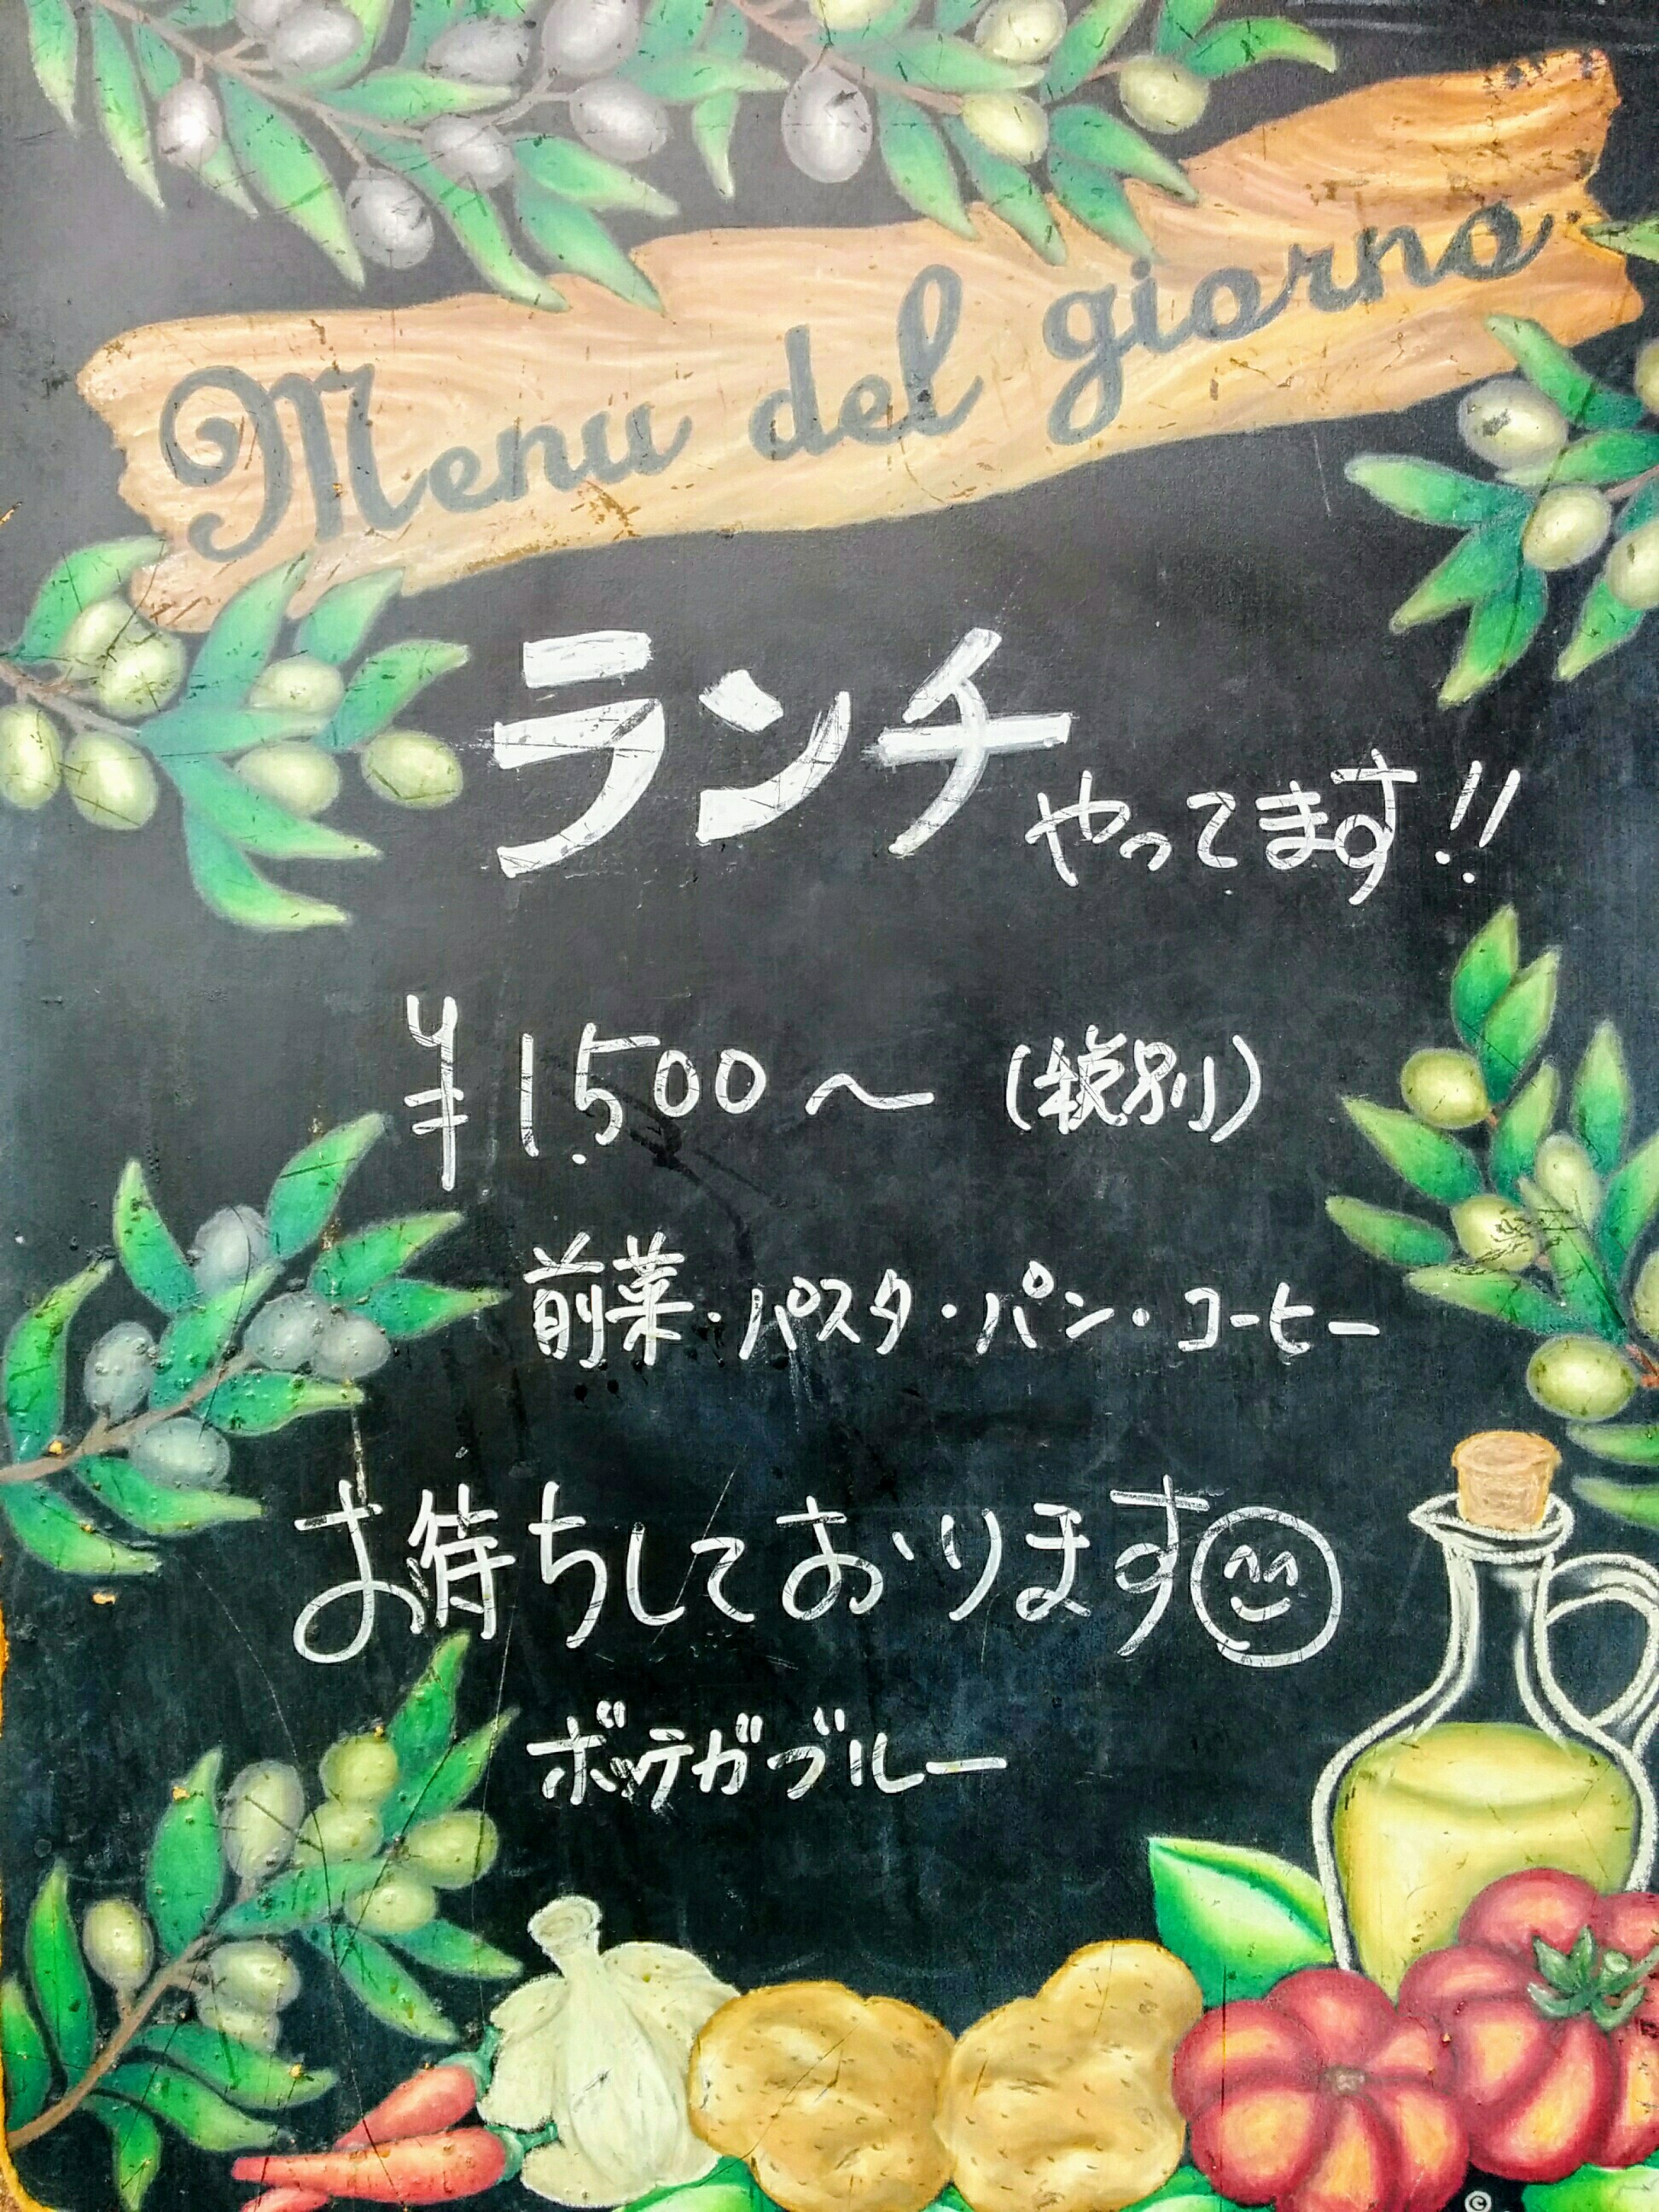 Menu del giorno
ランチやってます!!
¥1,500～(税別)
前菜・パスタ・パン・コーヒー
お待ちしております
ボッテガブルー
©